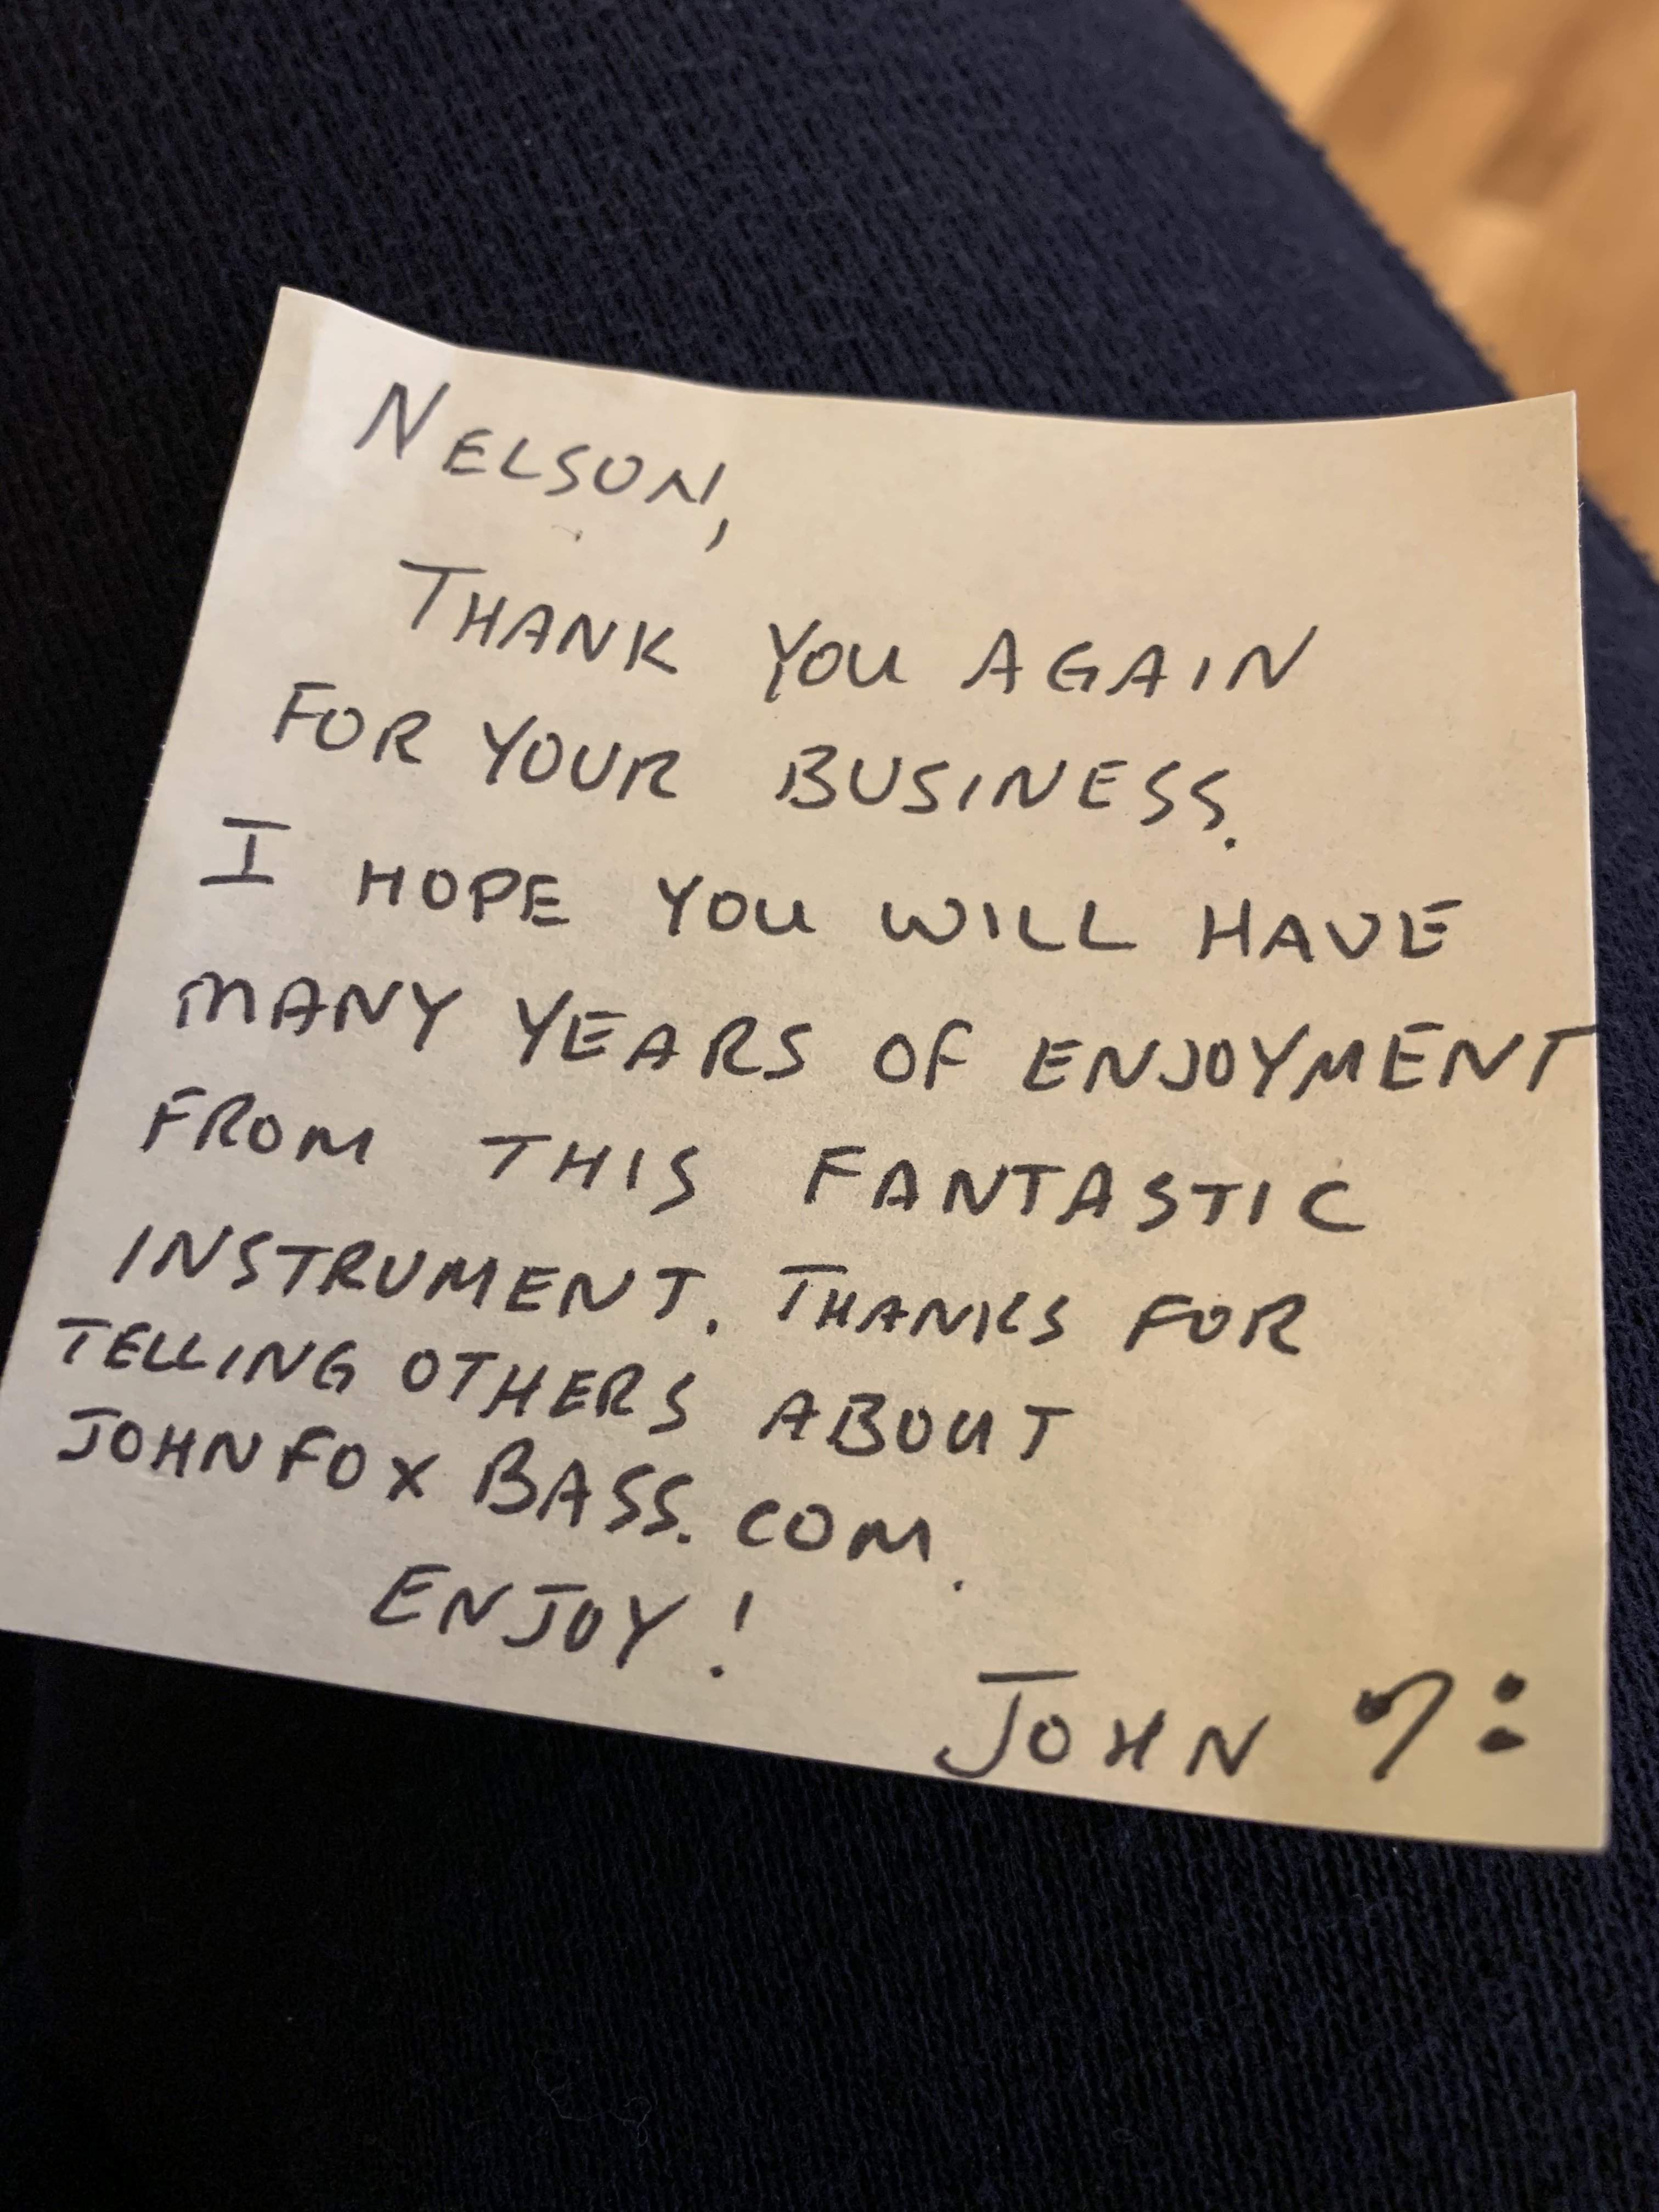 NELSON,
THANK YOU AGAIN
FOR YOUR BUSINESS.
I HOPE YOU WILL HAVE
MANY YEARS OF ENJOYMENT
FROM THIS FANTASTIC
INSTRUMENT. THANKS FOR
TELLING OTHERS ABOUT
JOHNFOXBASS.COM.
ENJOY!
JOHN